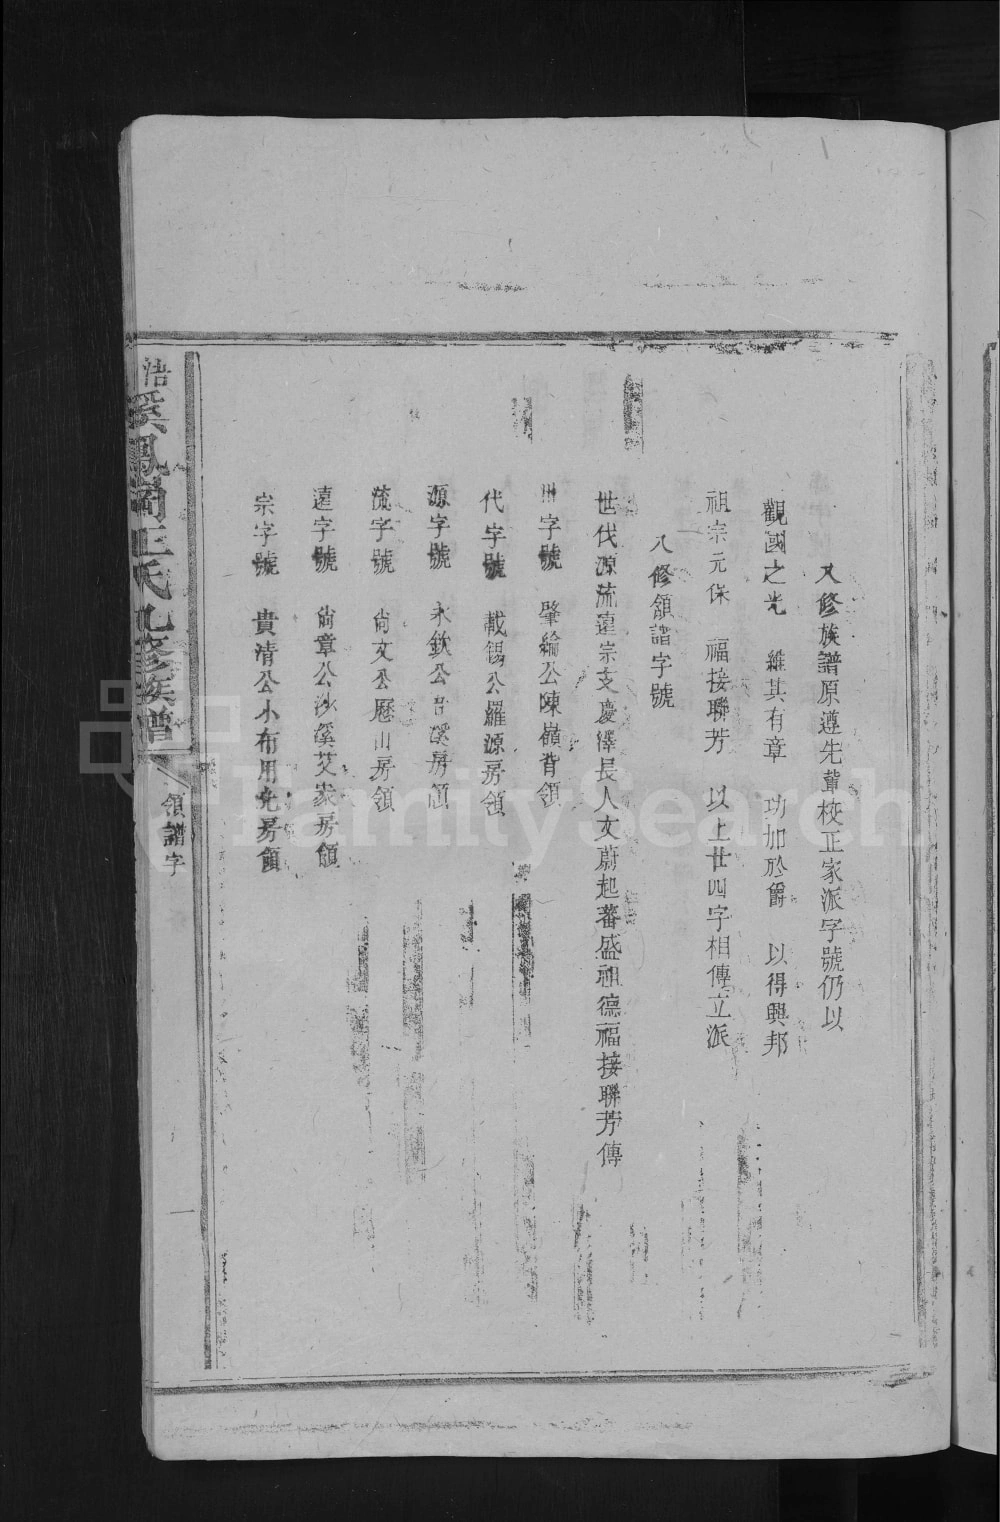 八修族譜原遵先輩校正家派字號仍以
觀國之光　維其有章　功加於爵　以得興邦
祖宗元保　福接聯芳　以上廿四字相傳立派
八修領譜字號
世代源流遠宗支慶澤長人文蔚起蕃盛祖德福接聯芳傳
世字號　肇綸公陳嶺背領
代字號　載錫公羅源房領
源字號　永欽公吉溪房領
流字號　尙文公歷山房領
遠字號　尙章公沙溪艾家房領
宗字號　貴清公小布用先房領
浯溪鳳岡王氏九修族譜
領譜字
一
FamilySearch